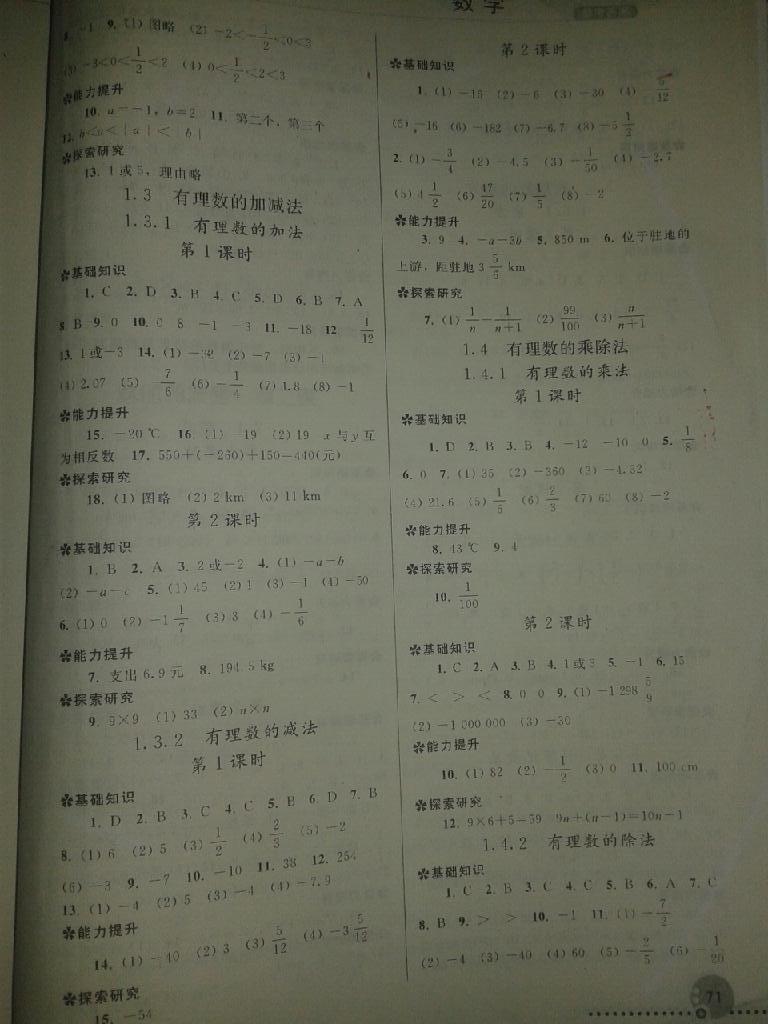 数学
9. (1) 图略 (2) －2＜－1/2＜0＜3
(3) －3＜0＜1/2＜2 (4) 0＜1/2＜2＜3
✽能力提升
10. a＝－1，b＝2 11. 第二个，第三个
12. b＜a＜|a|＜|b|
✽探索研究
13. 1或5，理由略
1.3 有理数的加减法
1.3.1 有理数的加法
第1课时
✽基础知识
1. C 2. D 3. B 4. C 5. D 6. B 7. A
8. B 9. 0 10. 0 8 －1 －3 11. －18 12. －1/12
13. 1或－3 14. (1) (2) －7 (3) －1
(4) 2.07 (5) 7/6 (6) －1/4 (7) 1.8 (8) －1
✽能力提升
15. －20 ℃ 16. (1) －19 (2) 19 x与y互
为相反数 17. 550＋(－260)＋150＝440(元)
✽探索研究
18. (1) 图略 (2) 2 km (3) 11 km
第2课时
✽基础知识
1. B 2. A 3. 2或－2 4. (1) －a－b
(2) －a－c 5. (1) 45 (2) 1 (3) －1 (4) －50
6. (1) 0 (2) －1 1/7 (3) 3 (4) －1/6
✽能力提升
7. 支出6.9元 8. 194.5 kg
✽探索研究
9. 9×9 (1) 33 (2) n×n
1.3.2 有理数的减法
第1课时
✽基础知识
1. D 2. B 3. C 4. C 5. B 6. D 7. B
8. (1) 6 (2) 5 (3) 1/2 (4) 2/3 (5) －2
(6) －3 9. －7 10. －10 11. 38 12. 254
13. (1) －4 (2) 5 (3) －4 (4) －7.9
✽能力提升
14. (1) －40 (2) 3 (3) 5/12 (4) －3 5/12
✽探索研究
15. －54
第2课时
✽基础知识
1. (1) －15 (2) －6 (3) －30 (4) 5/12
(5) －16 (6) －182 (7) －6.7 (8) －5 1/2
2. (1) －3/4 (2) －4.5 (3) －1/50 (4) －2.7
(5) 4 1/2 (6) 47/20 (7) 1/5 (8) －2
✽能力提升
3. 9 4. －a－3b 5. 850 m 6. 位于驻地的
上游，距驻地3 5/6 km
✽探索研究
7. (1) 1/n－1/(n＋1) (2) 99/100 (3) n/(n＋1)
1.4 有理数的乘除法
1.4.1 有理数的乘法
第1课时
✽基础知识
1. D 2. B 3. B 4. －12 －10 0 5. 1/8
6. 0 7. (1) 35 (2) －360 (3) －4.32
(4) 21.6 (5) 1/5 (6) 2/3 (7) 60 (8) －2
✽能力提升
8. 43 ℃ 9. 4
✽探索研究
10. 1/100
第2课时
✽基础知识
1. C 2. A 3. B 4. 1或3 5. －1 6. 15
7. ＜ ＞ ＜ 8. 0 0 9. (1) －1 298 5/9
(2) －1 000 000 (3) －30
✽能力提升
10. (1) 82 (2) －1/2 (3) 0 11. 100 cm
✽探索研究
12. 9×6＋5＝59 9n＋(n－1)＝10n－1
1.4.2 有理数的除法
✽基础知识
1. C 2. B 3. C 4. C 5. B 6. A 7. C
8. B 9. ＞ ＞ 10. －1 11. (1) －7/2
(2) －4 (3) －40 (4) 60 (5) －2/5 (6) －1/20
71